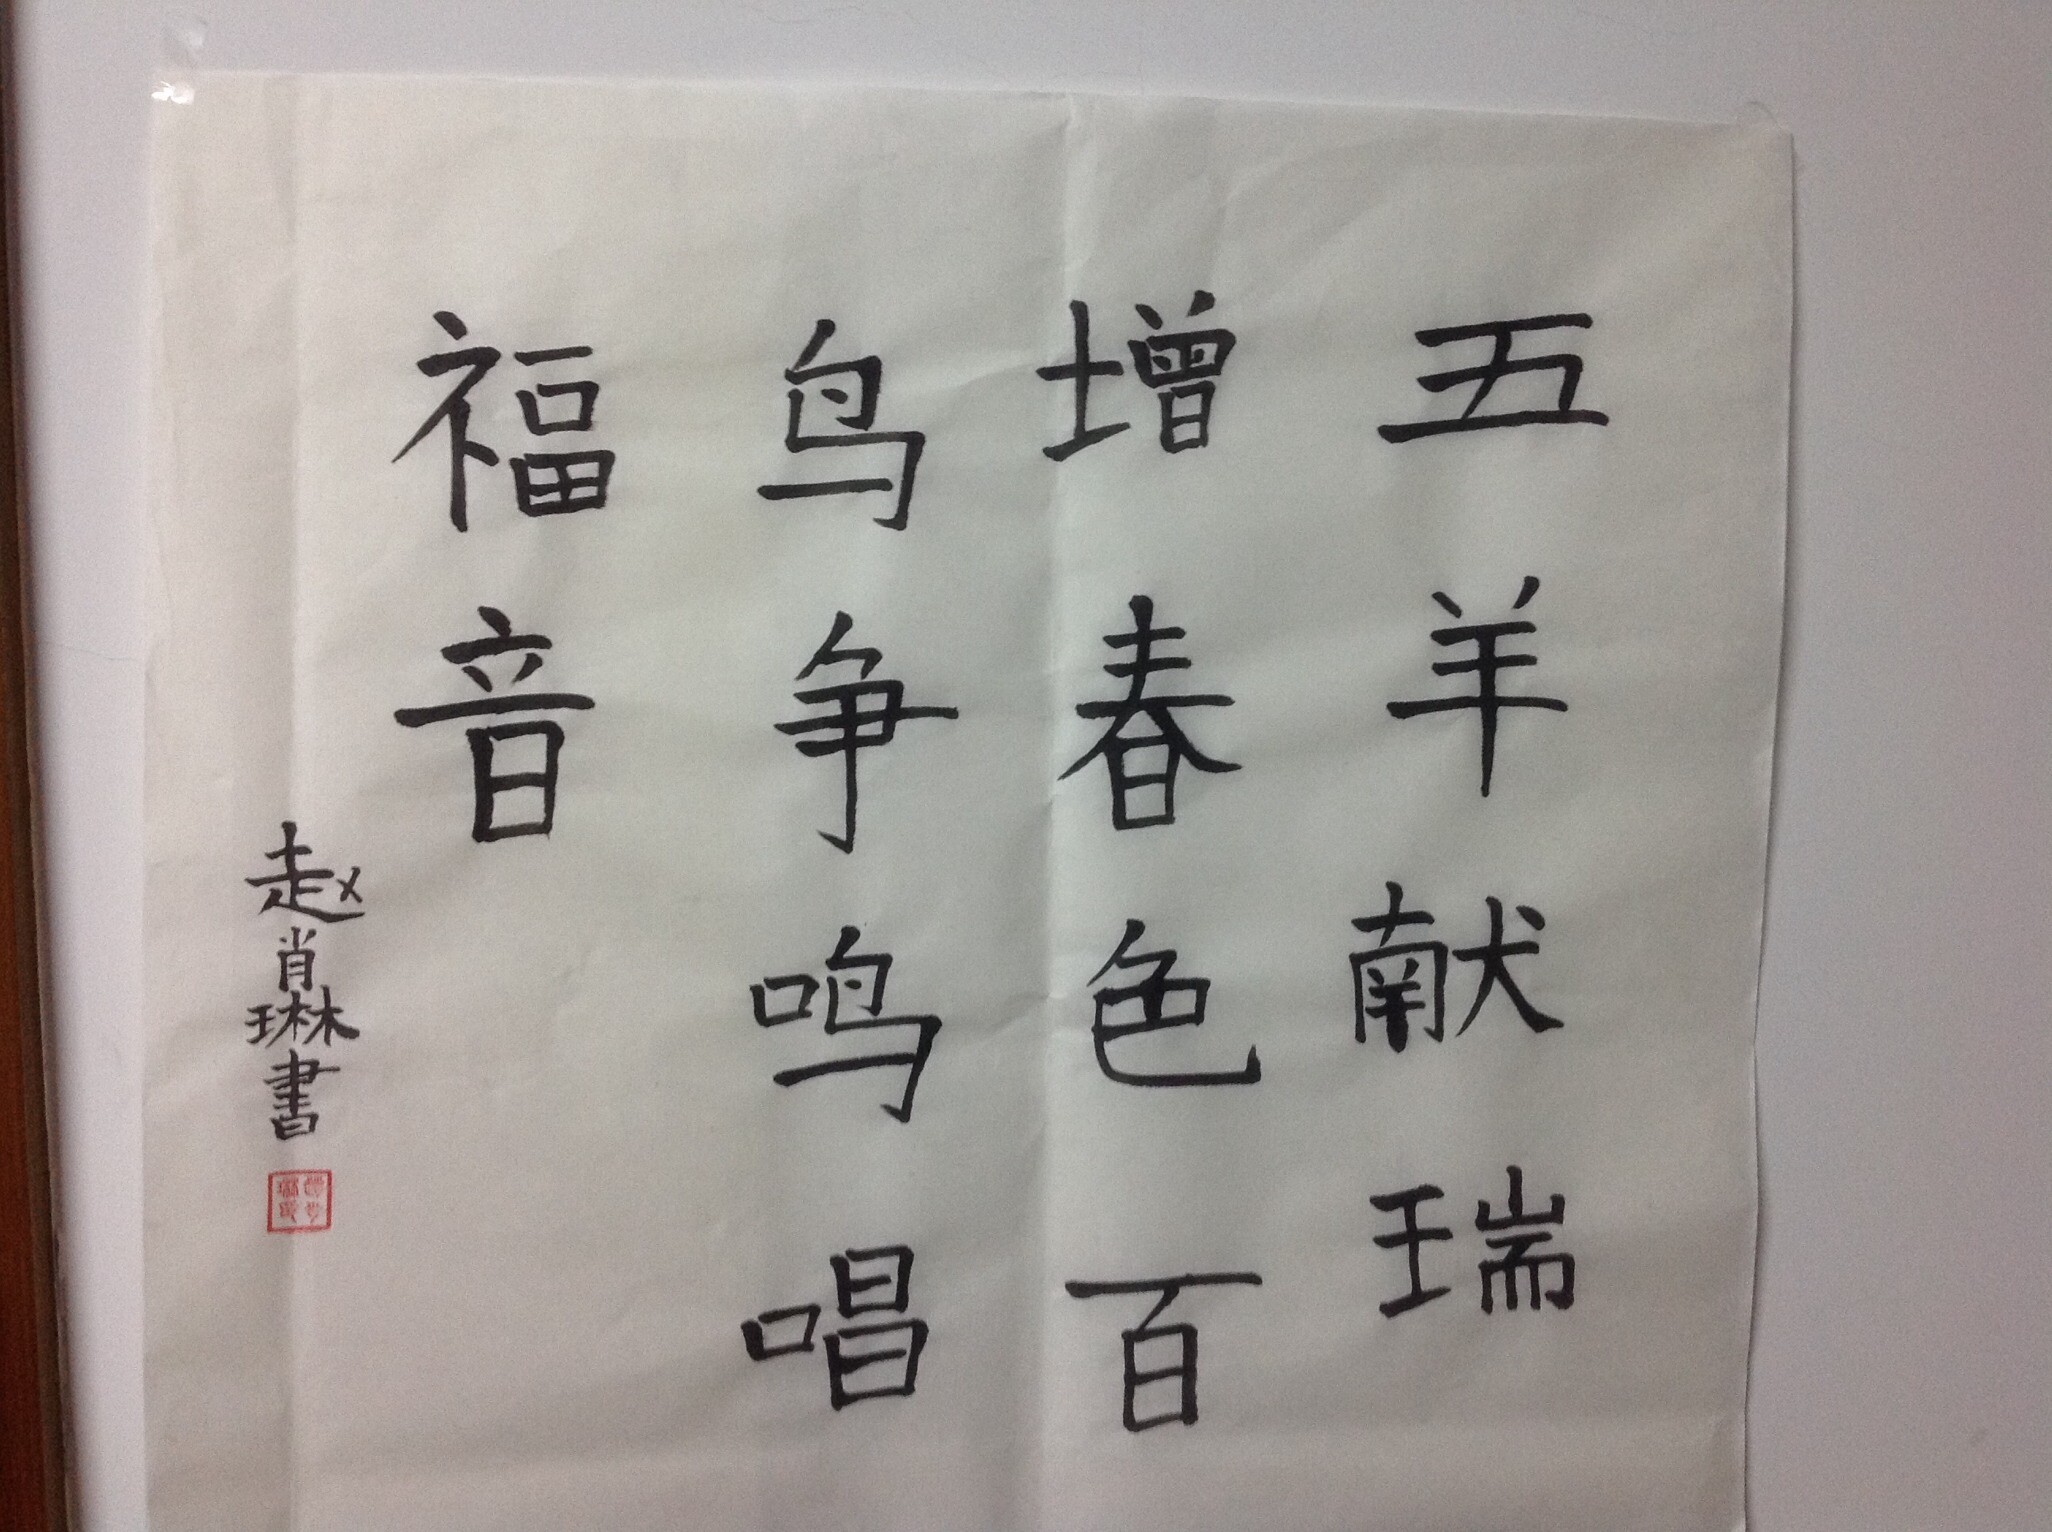 五羊献瑞
增春色百
鸟争鸣唱
福音
赵肖琳書